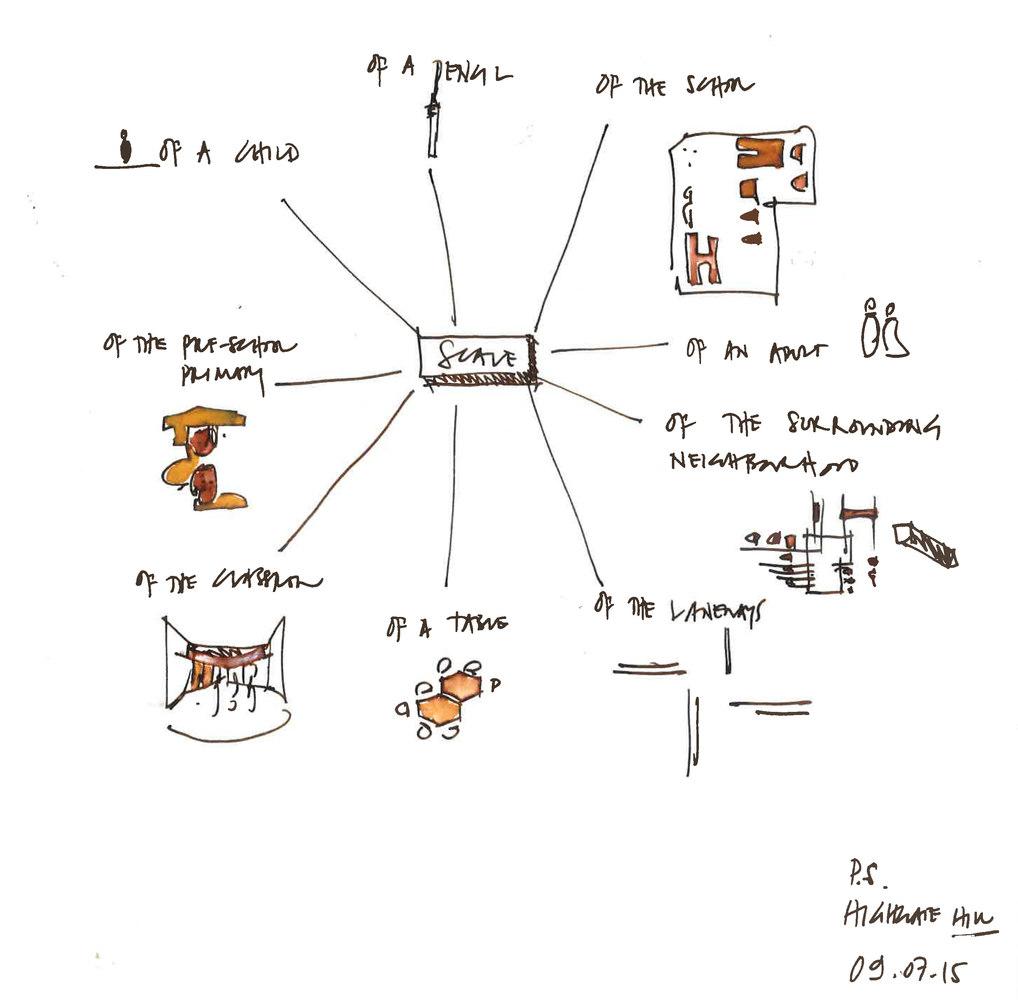 OF A PENCIL
OF THE SCHOOL
OF A CHILD
OF THE PRE-SCHOOL
PRIMARY
SCALE
OF AN ADULT
OF THE SURROUNDING
NEIGHBORHOOD
OF THE CLASSROOM
OF A TABLE
OF THE LANEWAYS
P.S.
HIGHGATE HILL
09.07.15